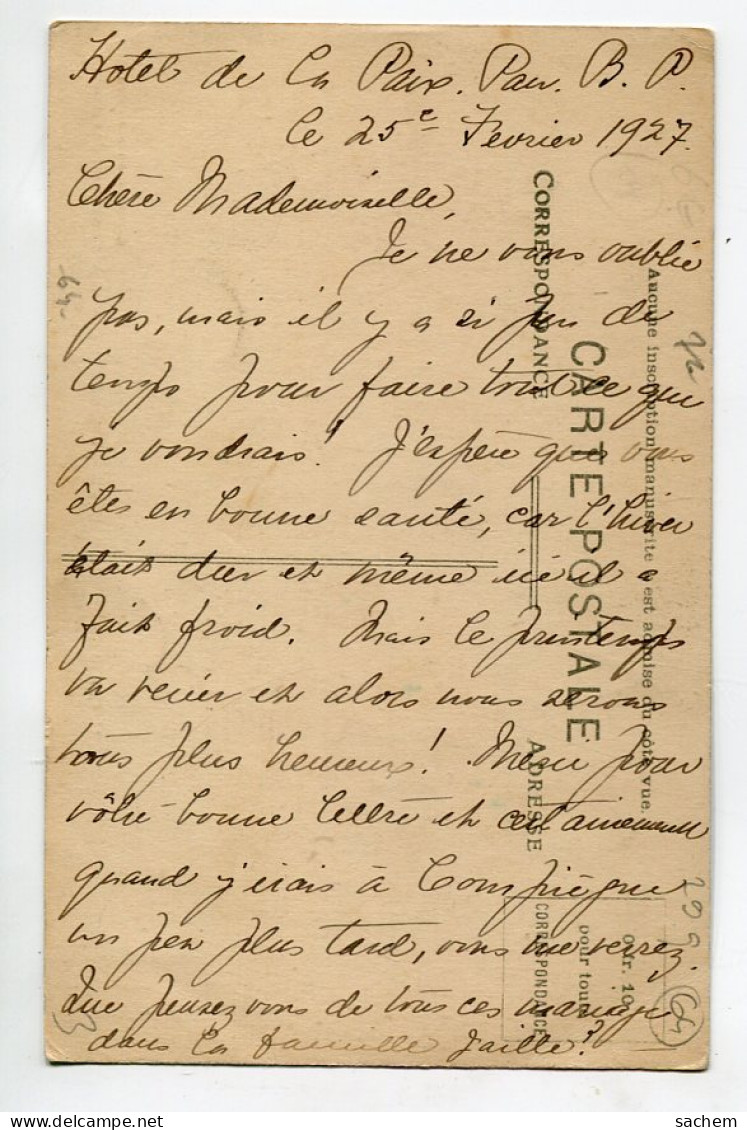 Hotel de la Paix. Pau. B. P.
le 25e Fevrier 1927.
Chère Mademoiselle,
Je ne vous oublie
pas, mais il y a si peu de
temps pour faire tout ce que
je voudrais! J'espère que vous
êtes en bonne santé, car l'hiver
était dur et même ici il a
fait froid. Mais le printemps
va venir et alors nous serons
tous plus heureux! Merci pour
vôtre bonne lettre et certainement
quand j'irais à Compiègne
un peu plus tard, vous me verrez.
Que pensez vous de tous ces mariage
dans la famille Jaille?
CORRESPONDANCE
CARTE POSTALE
ADRESSE
Aucune inscription manuscrite n'est admise du côté vue.
0fr. 10
pour toute
CORRESPONDANCE
64
64
209
sachem